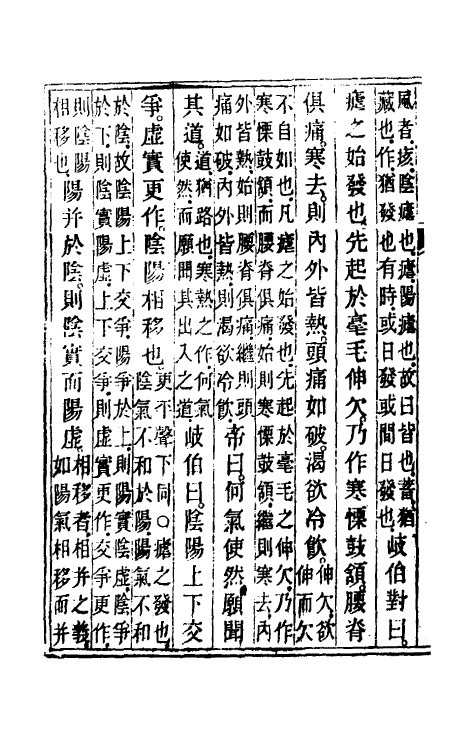 風者，痎，陰瘧也，瘧，陽瘧也，故曰皆也，蓄，猶
藏也，作，猶發也，有時，或日發，或間日發也，
岐伯對曰。
瘧之始發也，先起於毫毛，伸欠，乃作寒慄鼓頷，腰脊
俱痛。寒去，則內外皆熱。頭痛如破。渴欲冷飲。
伸欠，欲
伸而欠
不自如也，凡瘧之始發也，先起於毫毛之伸欠，乃作
寒慄鼓頷，而腰脊俱痛，始則寒慄鼓頷，繼則寒去，內
外皆熱，始則腰脊俱痛，繼則頭
痛如破，內外皆熱，則渴欲冷飲，
帝曰。何氣使然，願聞
其道。
道，猶路也，寒熱之作，何氣
使然，而願聞其出入之道，
岐伯曰。陰陽上下交
爭。虛實更作。陰陽相移也，
更，平聲，下同。○瘧之發也，
陰氣不和於陽，陽氣不和
於陰，故陰陽上下交爭，陽爭於上，則陽實陰虛，陰爭
於下，則陰實陽虛，上下交爭，則虛實更作，交爭更作，
則陰陽
相移也，
陽并於陰。則陰實而陽虛。
相移者，相并之義，
如陽氣相移而并